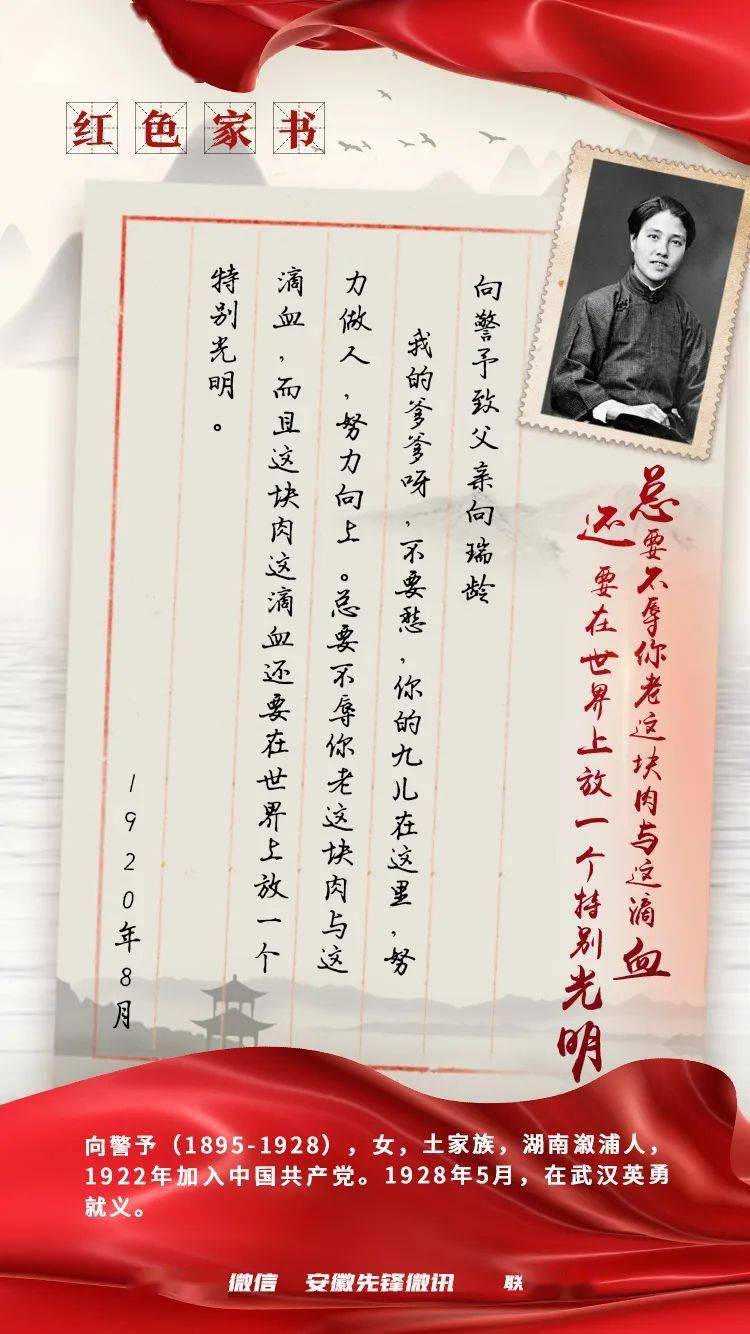 红色家书
向警予致父亲向瑞龄
我的爹爹呀，不要愁，你的九儿在这里，努
力做人，努力向上。总要不辱你老这块肉与这
滴血，而且这块肉这滴血还要在世界上放一个
特别光明。
1920年8月
总要不辱你老这块肉与这滴血
还要在世界上放一个特别光明
向警予（1895-1928），女，土家族，湖南溆浦人，
1922年加入中国共产党。1928年5月，在武汉英勇
就义。
微信 安徽先锋微讯 联